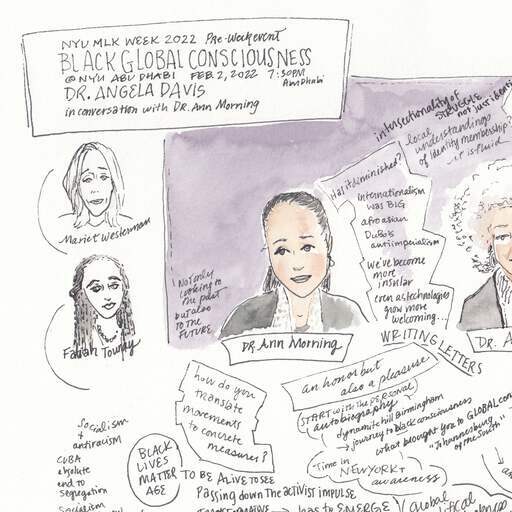 NYU MLK WEEK 2022 Pre-Week event
BLACK GLOBAL CONSCIOUSNESS
@ NYU ABU DHABI FEB. 2, 2022 7:30PM
Abu Dhabi
DR. ANGELA DAVIS
in conversation with DR. Ann Morning
Mariet Westermann
Farah Toumy
intersectionality of
STRUGGLE
not just identi
local
understandings
of Identity membership?
it is fluid
Has it diminished?
Internationalism
was BIG
afro asian
DuBois
antiimperialism
We've become
more
insular
even as technologies
grow more
welcoming...
Not only
looking to
the past
but also
to the
FUTURE
DR Ann Morning
DR. A
WRITING LETTERS
how do you
translate
movements
to concrete
measures?
an honor but
also a pleasure
START with the PERSONAL
autobiography
dynamite hill Birmingham
journey to black consciousness
what brought you to GLOBAL con
"Johannesburg
of the South"
"Time in
NEW YORK +
awareness
Socialism
+
antiracism
CUBA
absolute
end to
segregation
Socialism
BLACK
LIVES
MATTER
AGE
TO BE ALIVE TO SEE
Passing down THE activist impulse
has to EMERGE
global